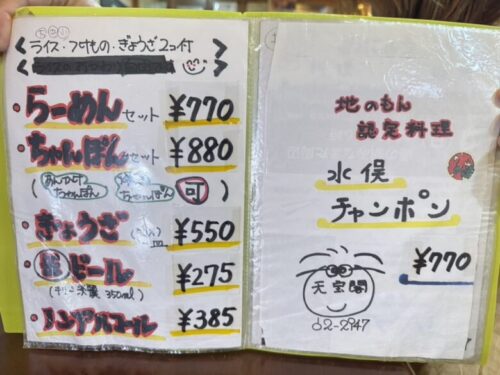 ライス・つけもの・ぎょうざ2コ付
・らーめんセット ¥770
・ちゃんぽんセット ¥880
可
・ぎょうざ ¥550
ビール ¥275
350ml
・ノンアルコール ¥385
地のもん
認定料理
水俣
チャンポン
¥770
天宝閣
62-2947